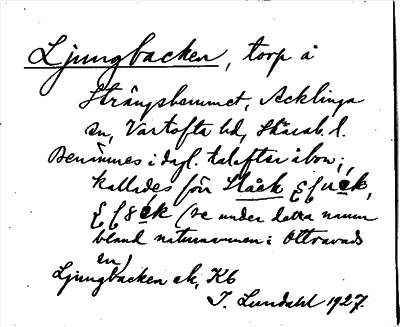 Ljungbacken, torp å
Strängshemmet, Acklinga
sn, Vartofta hd, Skarab. l.
Benämnes i dagl. tal efter åbon;
kallades förr Slååk
(se under detta namn
bland naturnamnen i Ottravads
sn)
Ljungbacken ek, Kb
I. Lundahl 1927.